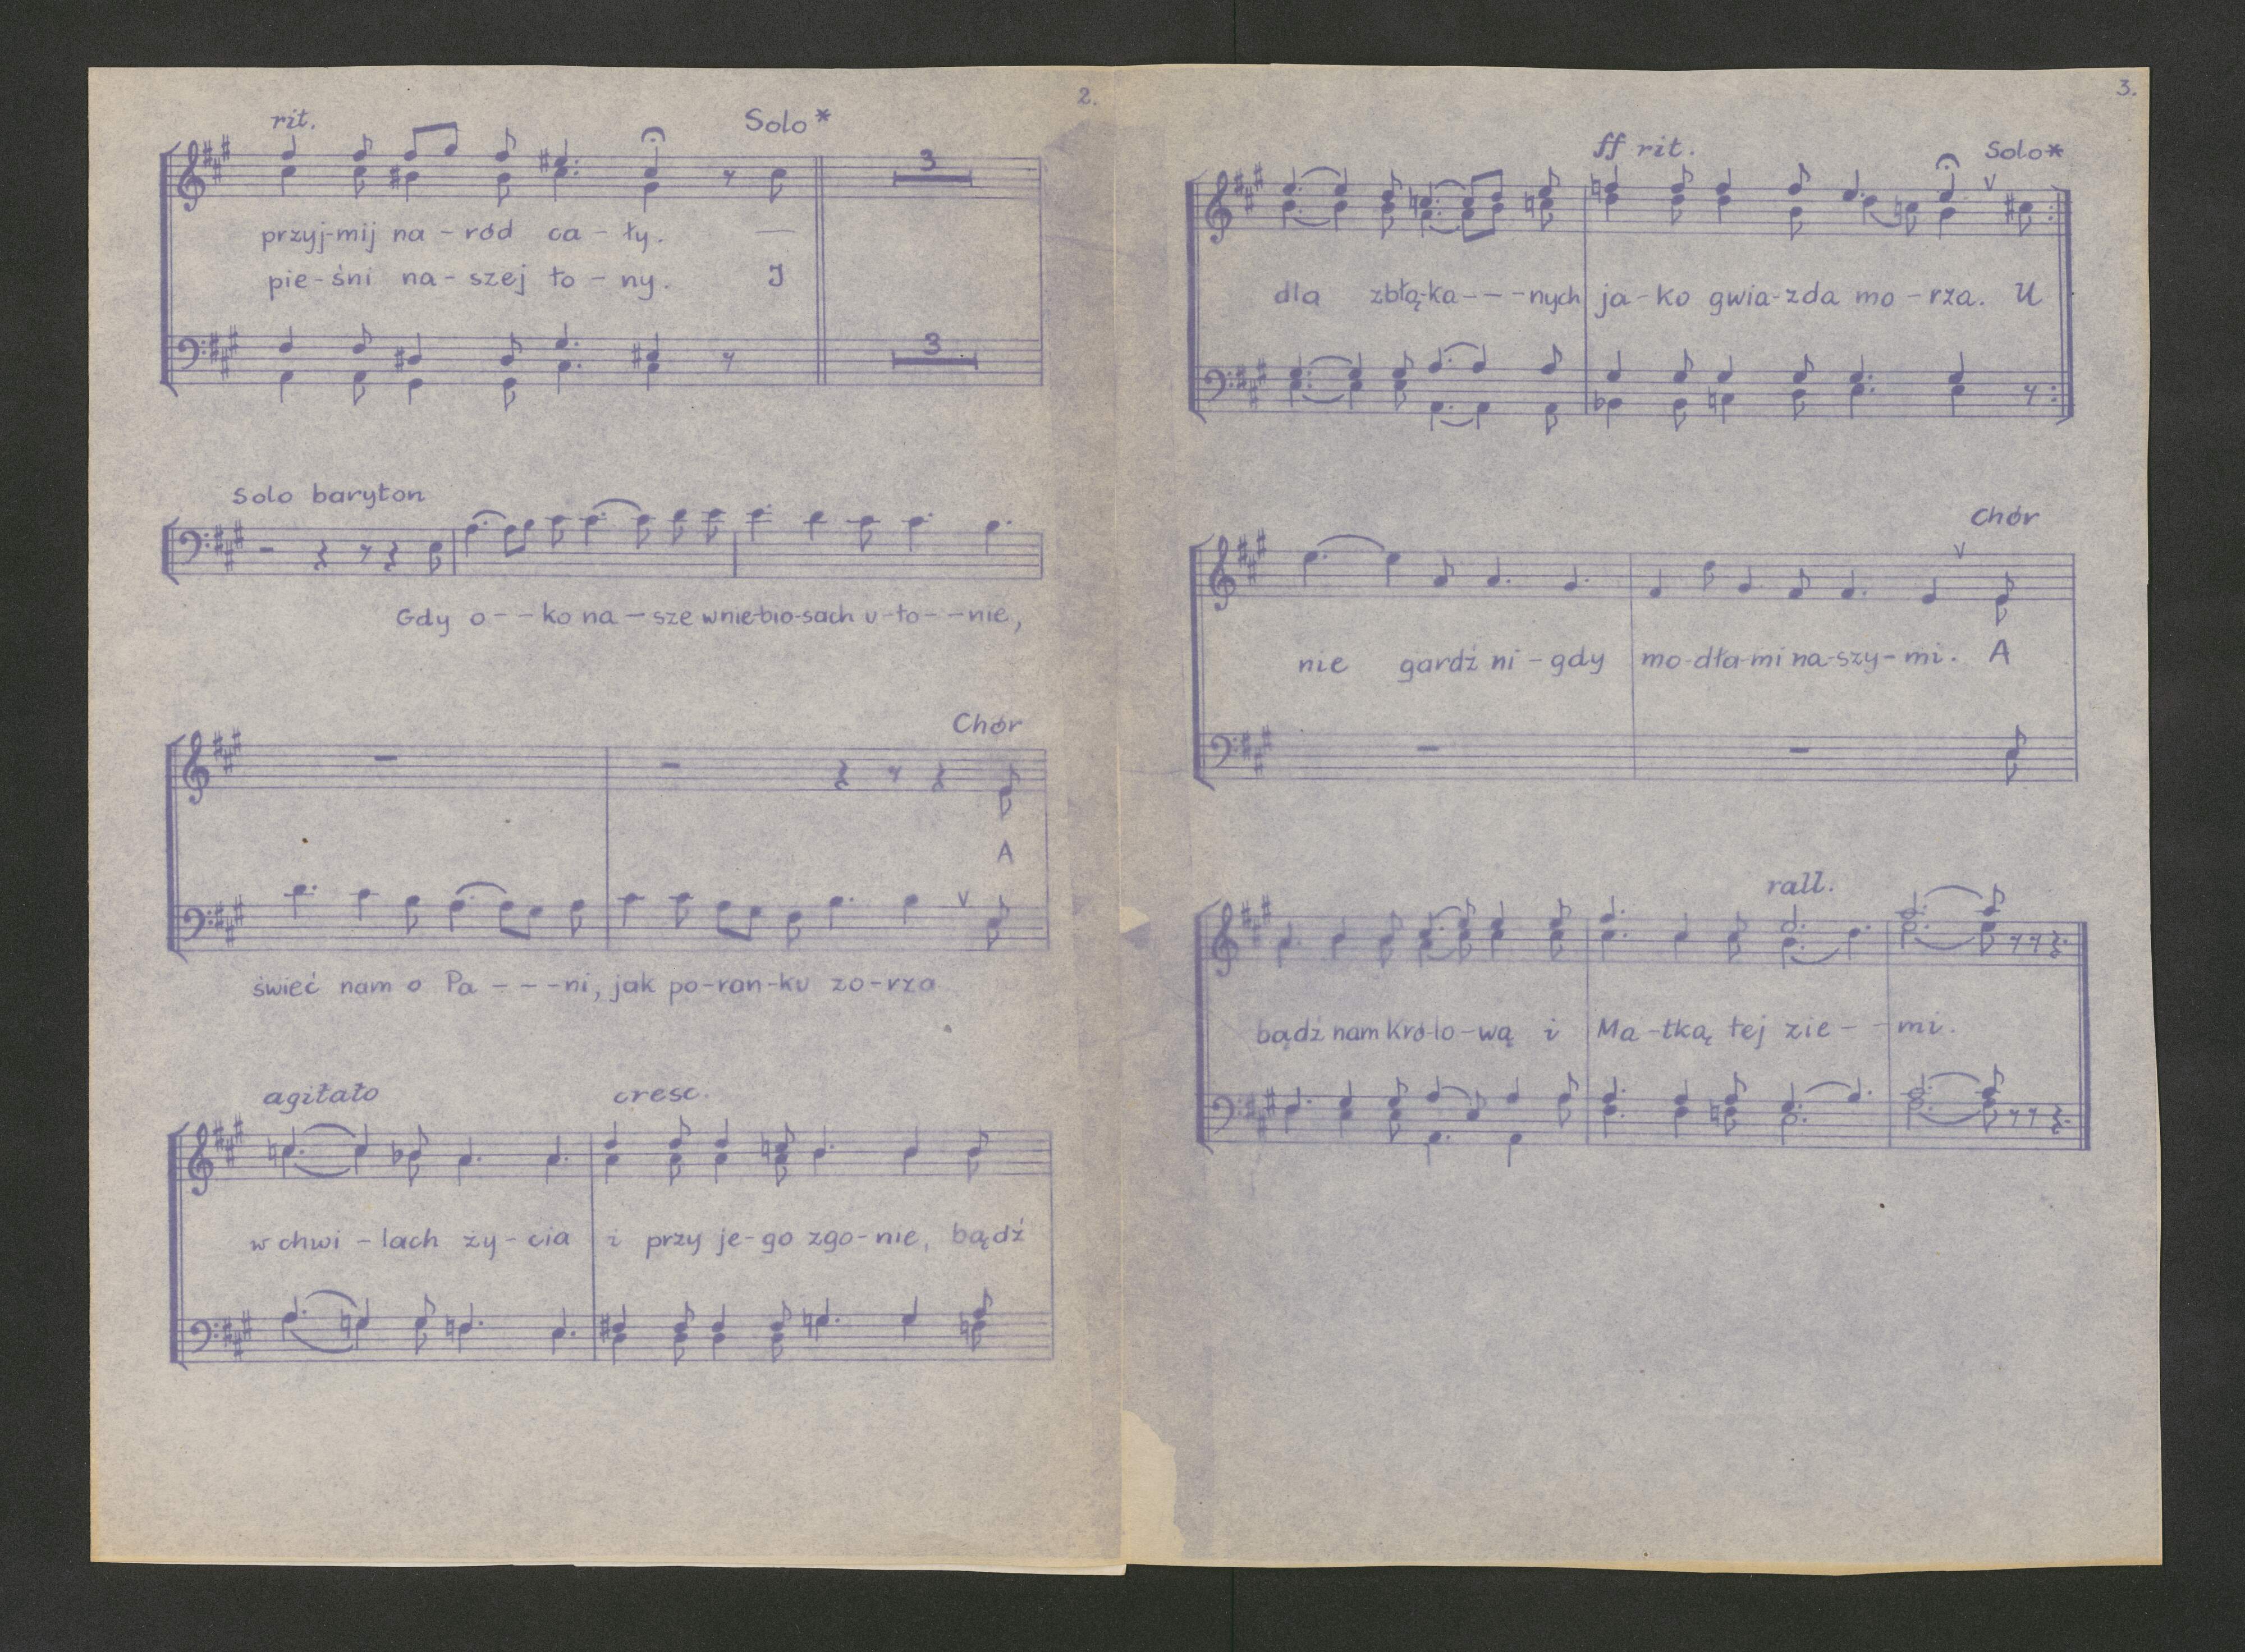 2.
rit. Solo*
3
przyj-mij na-ród ca-ły. —
pie-śni na-szej to-ny. I
3
Solo baryton
Gdy o--ko na-sze w nie-bio-sach u-to--nie,
Chór
A
świeć nam o Pa---ni, jak po-ran-ku zo-rza
agitato cresc.
w chwi-lach ży-cia i przy je-go zgo-nie, bądź
3.
ff rit. Solo*
dla zbłą-ka---nych ja-ko gwia-zda mo-rza. U
Chór
nie gardź ni-gdy mo-dła-mi na-szy-mi. A
rall.
bądź nam Kró-lo-wą i Ma-tką tej zie--mi.